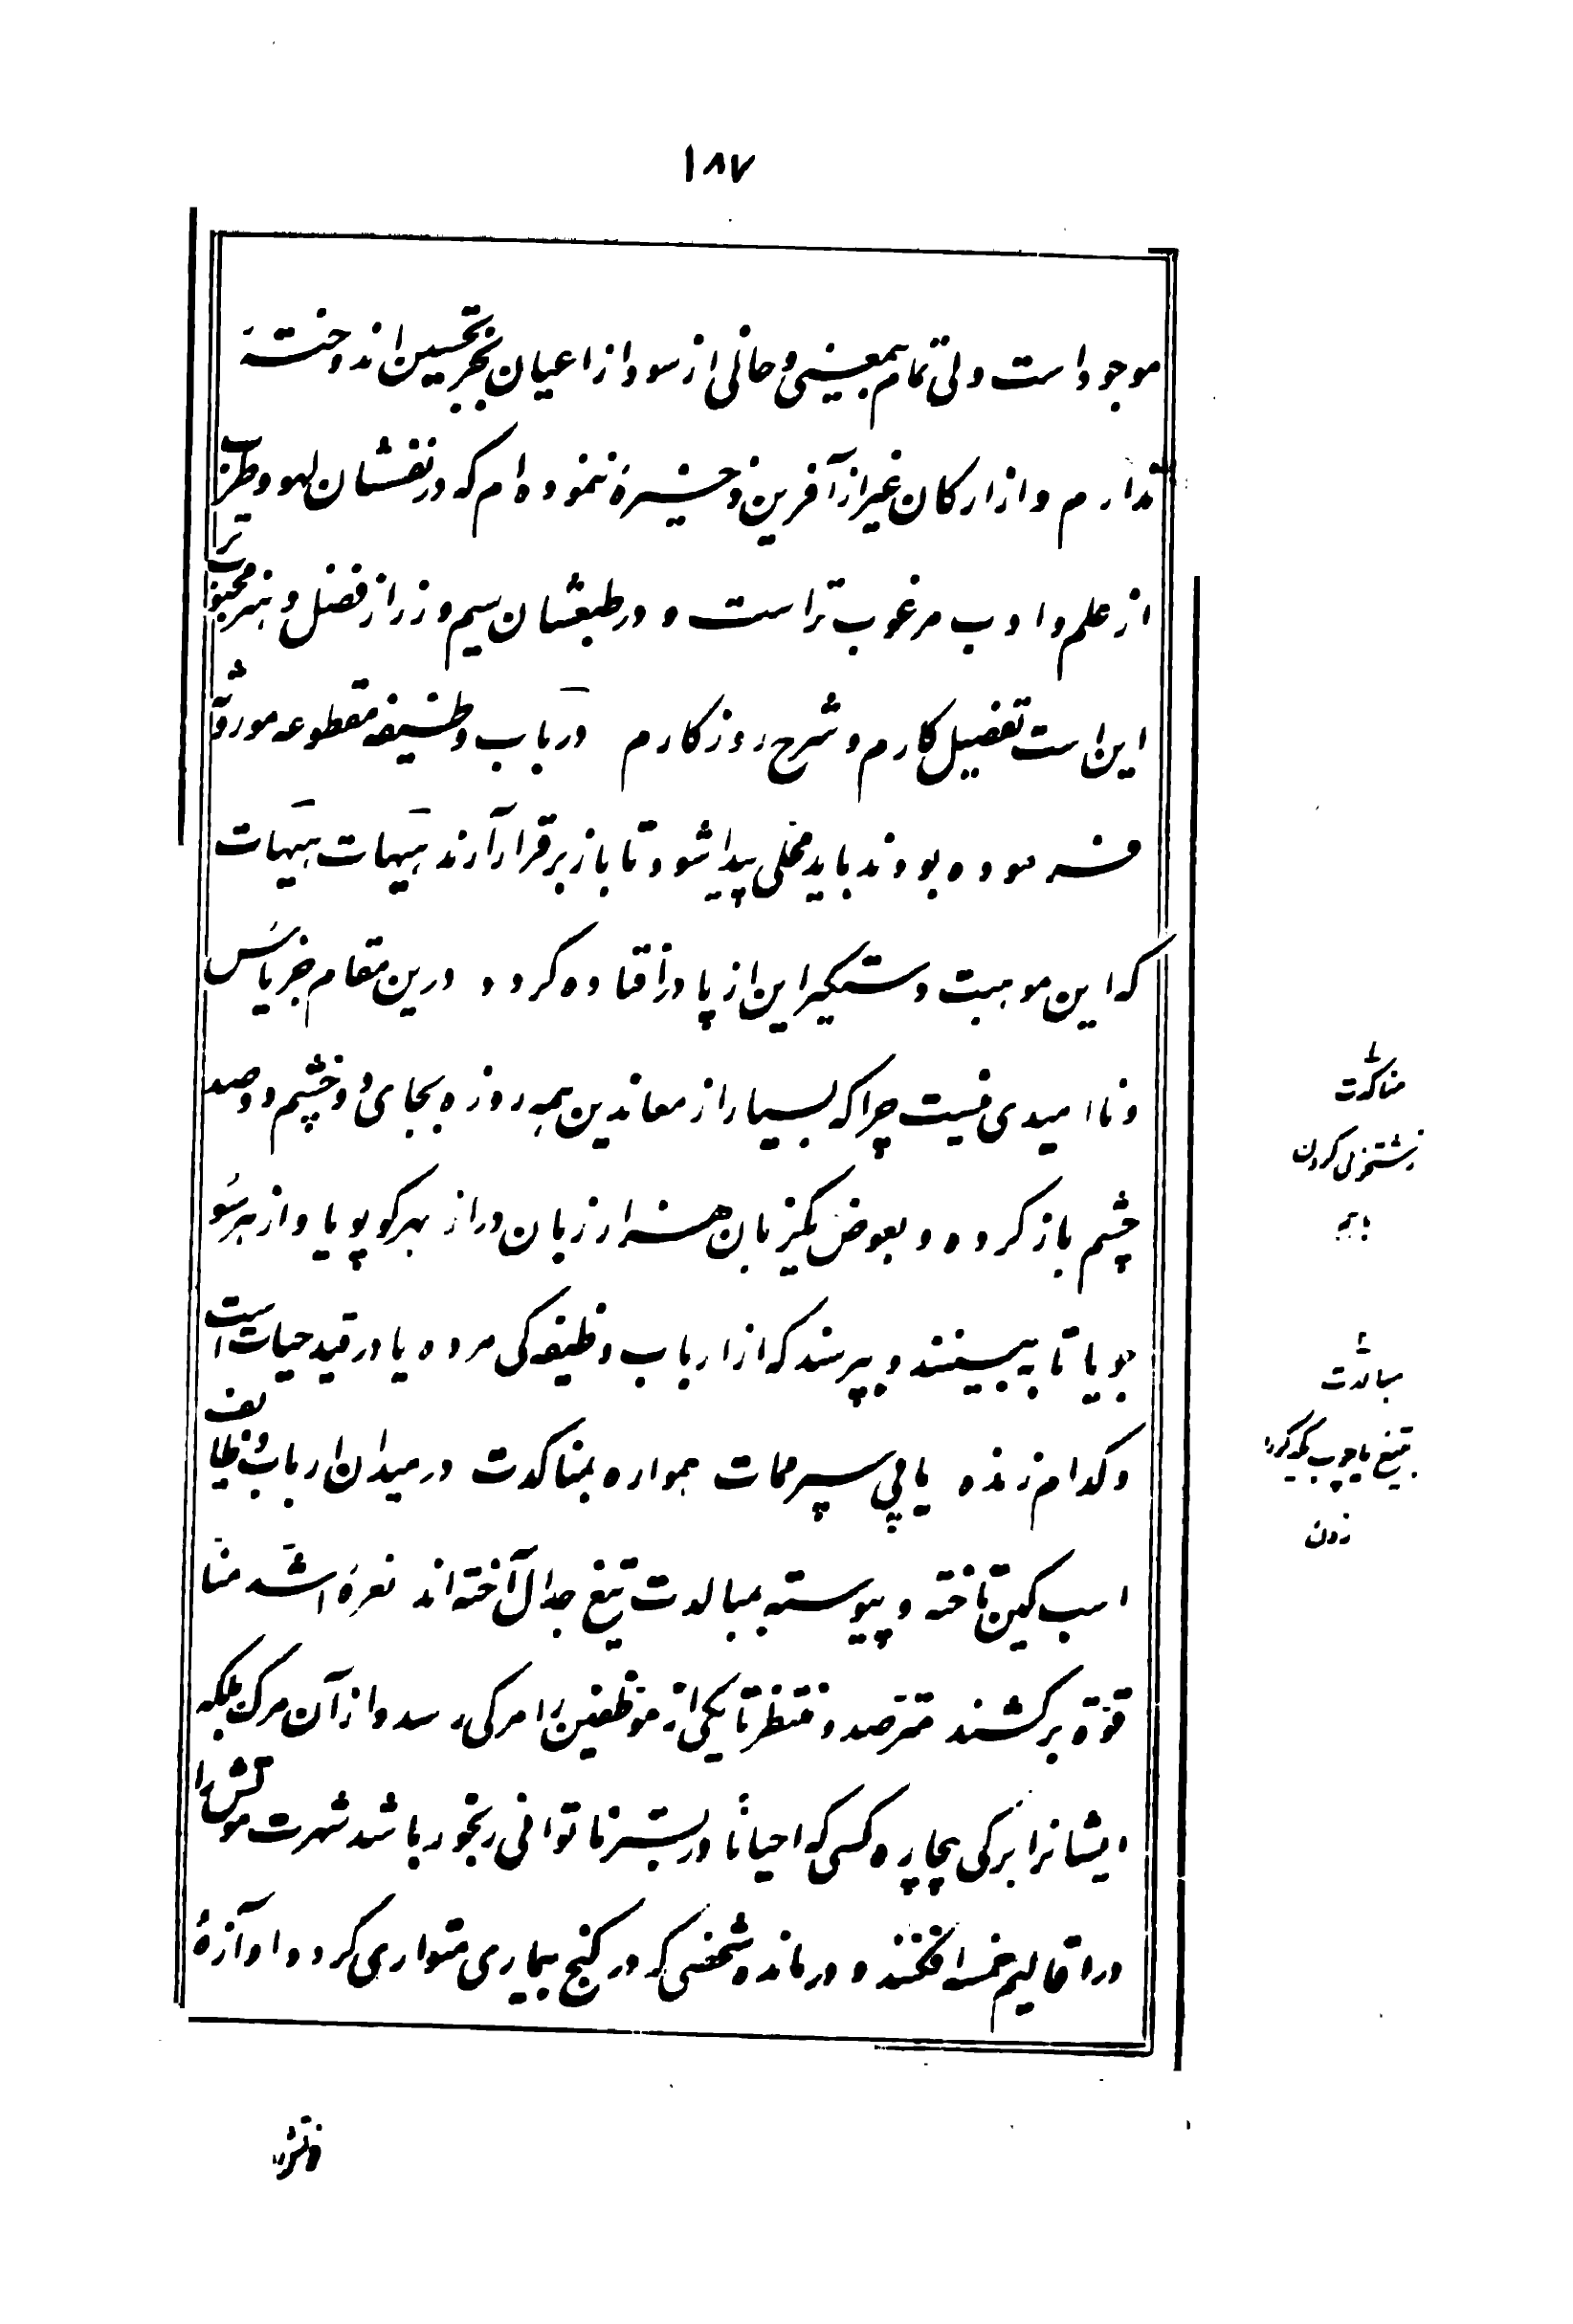 ۱۸۷
موجود است ولی تمام بمعنی و خالی از سود از اعیان بجز تحسین اندوخته
ندارم و از ارکان غیر از آفرین ذخیره ننموده‌ام که در نفسشان لهو و طرب
از علم و ادب مرغوب تر است و در طبعشان سیم و زر از فضل و هنر محبوب تر
این است تفصیل کارم و شرح روزکارم در باب وظیفه مقطوعه موروثه
فرموده بودند باید محلی پیدا شود تا باز برقرار آرند هیهات هیهات
که این موهبت دستکیر این از پا در افتاده کردد درین مقام جز یاس
و ناامیدی نیست چرا که بسیار از معاندین همه روزه بجای دو چشم دو صد
چشم باز کرده و بعوض یکزبان هزار زبان دراز بهر کو پویا و از هر سو
جویا تا به بینند و بپرسند که از ارباب وظیفه کی مرده یا در قید حیات است
و کدام زنده یا پی سپر ممات همواره بمناکدت در میدان ارباب وظایف
اسب کین تاخته و پیوسته بمبالدت تیغ جدال آخته‌اند نعره اشد منا
قوة برکشند مترصد و منتظر تا یکی از موظفین را مرکی رسد و از آن مرک بلکه
ایشانرا برکی بیچاره کسی که احیاناً در بستر ناتوانی رنجور باشد شهرت موتش را
در اقالیم خمسه افکنند و درمانده شخصی که در کنج بیماری متواری کردد آوازهٔ
مناکدت
سختی کردن
باهم
مبالدت
بتیغ یا چوب یکدیکر را
زدن
فوتش